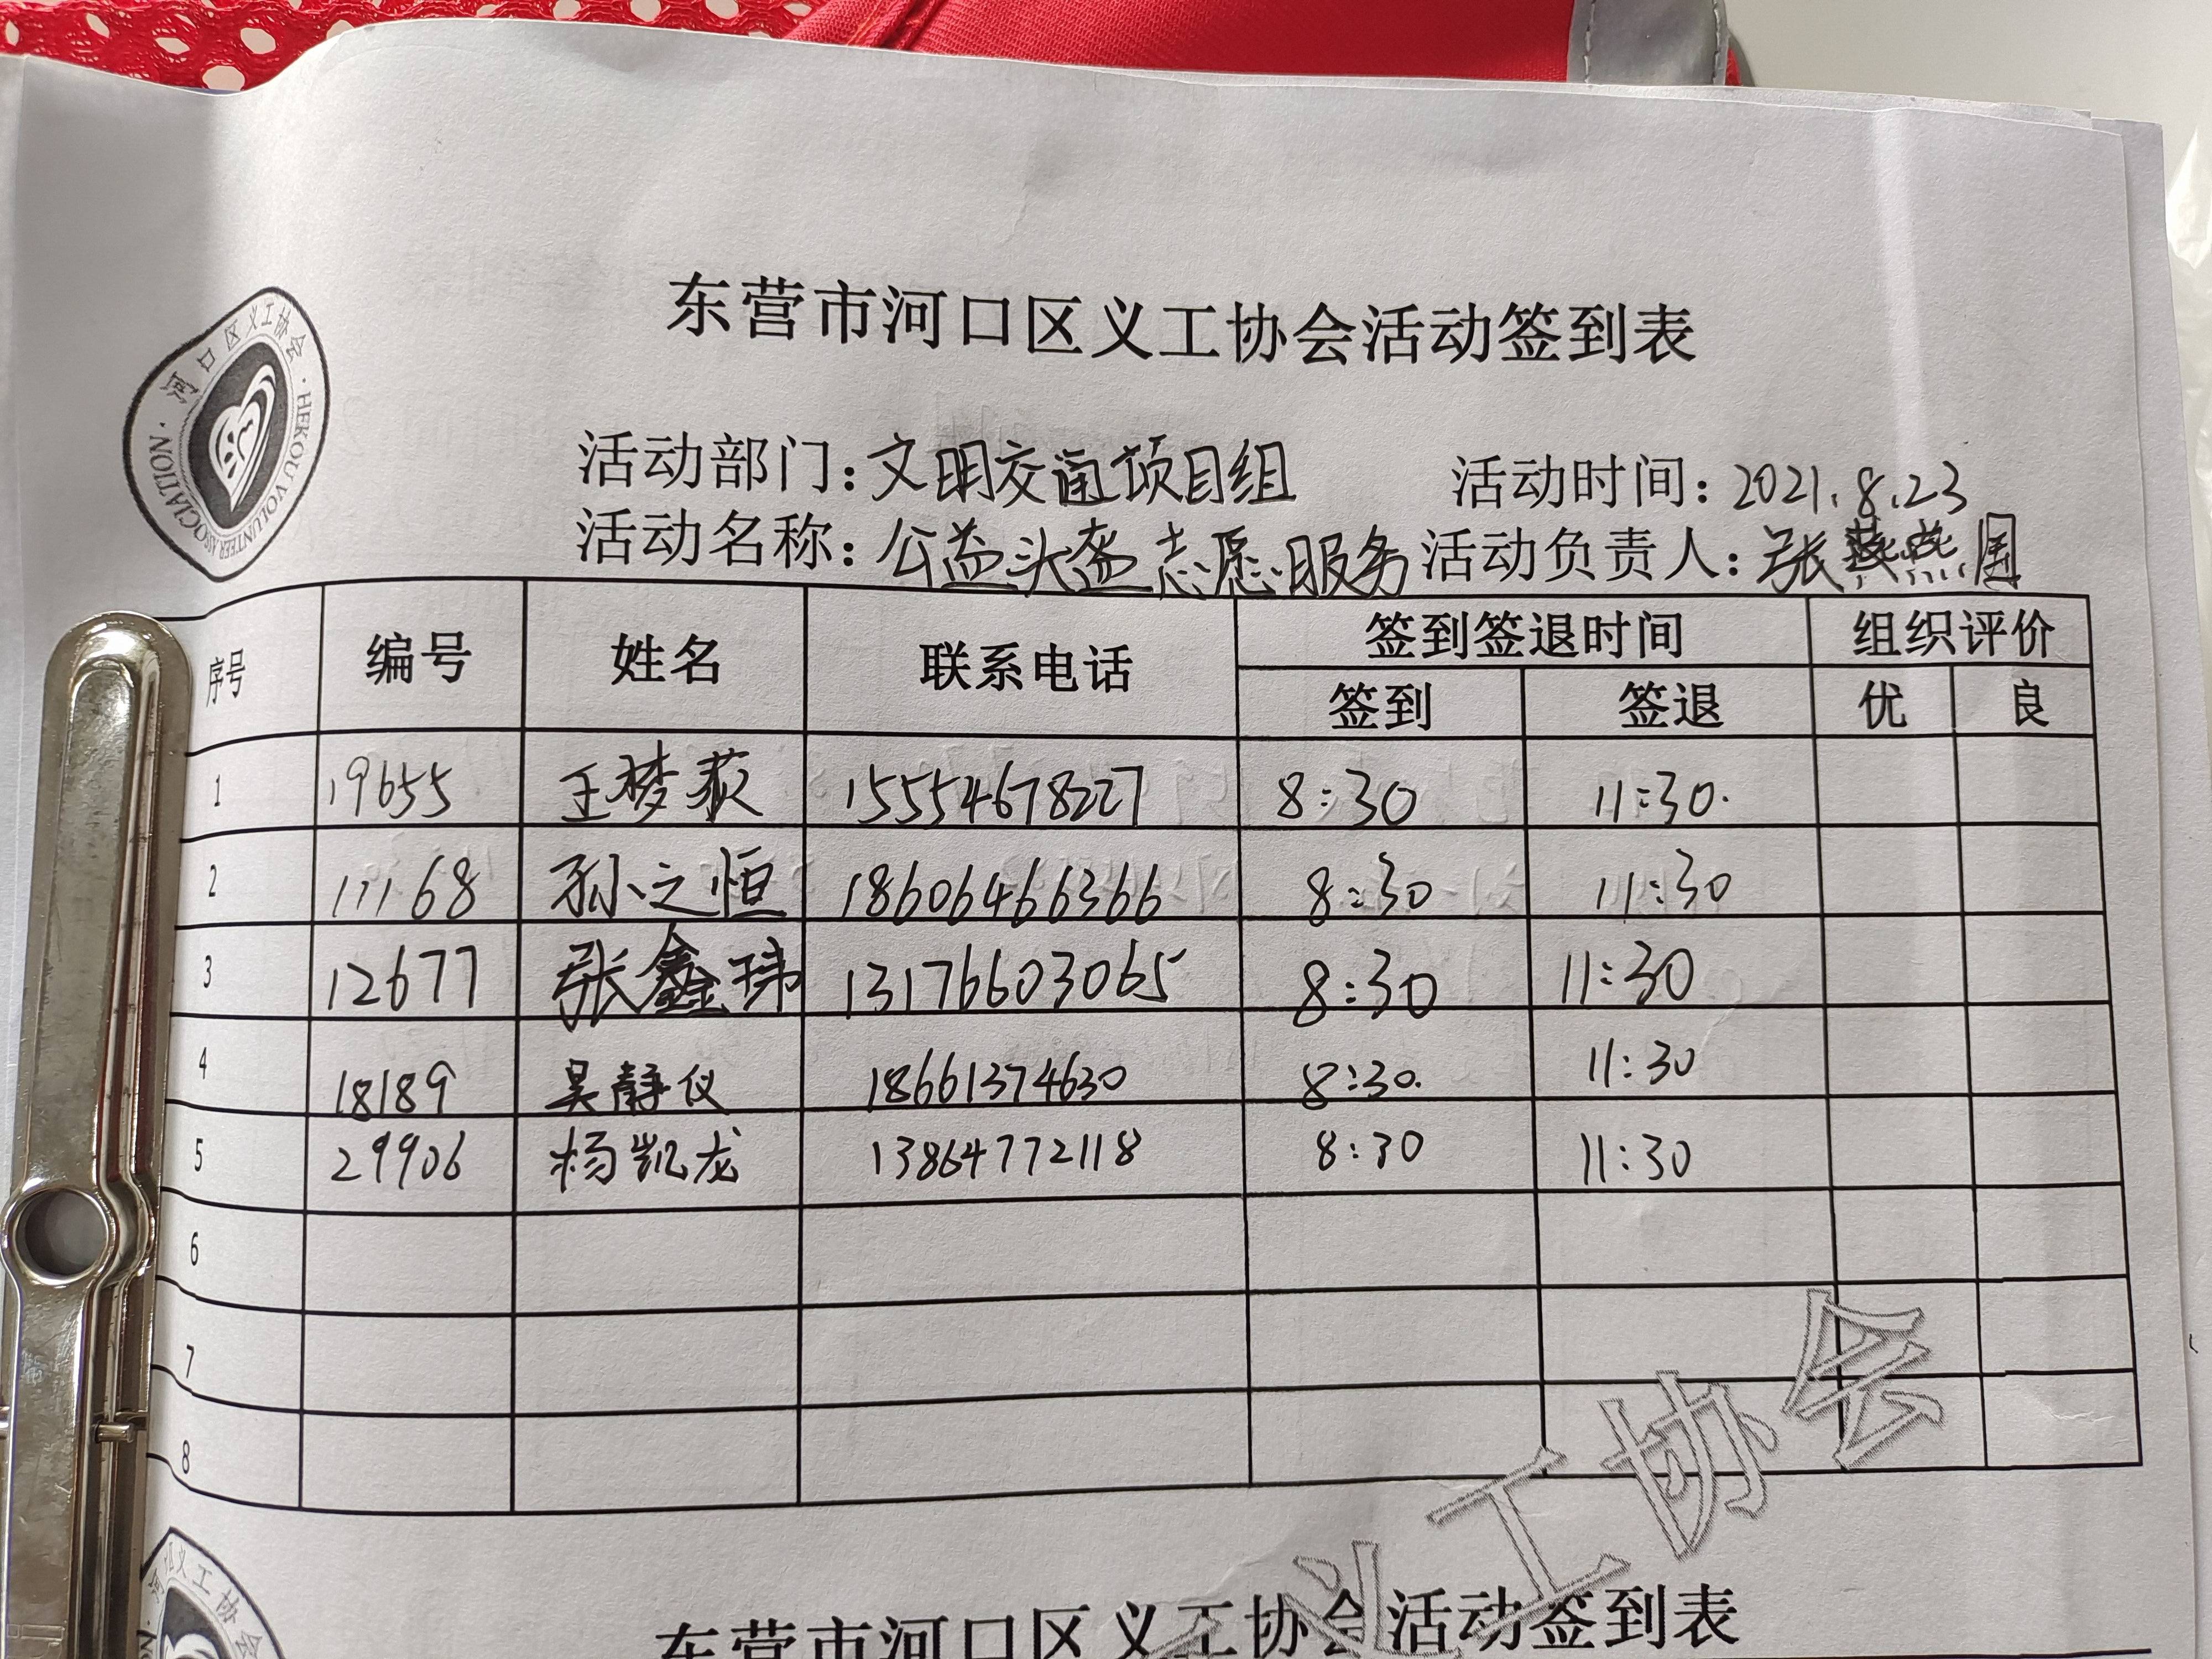 东营市河口区义工协会活动签到表
河口区义工协会·HEKOU VOLUNTEER ASSOCIATION·
活动部门：文明交通项目组 活动时间：2021.8.23
活动名称：公益头盔志愿服务 活动负责人：张燕国
序号 编号 姓名 联系电话 签到签退时间 组织评价
签到 签退 优 良
1 19655 王梦荻 15554678227 8:30 11:30.
2 11168 孙之恒 18606466366 8:30 11:30
3 12677 张鑫玮 13176603065 8:30 11:30
4 18189 吴静仪 18661374630 8:30. 11:30
5 29906 杨凯龙 13864772118 8:30 11:30
6
7
8
义工协会
河口区义工协会
东营市河口区义工协会活动签到表